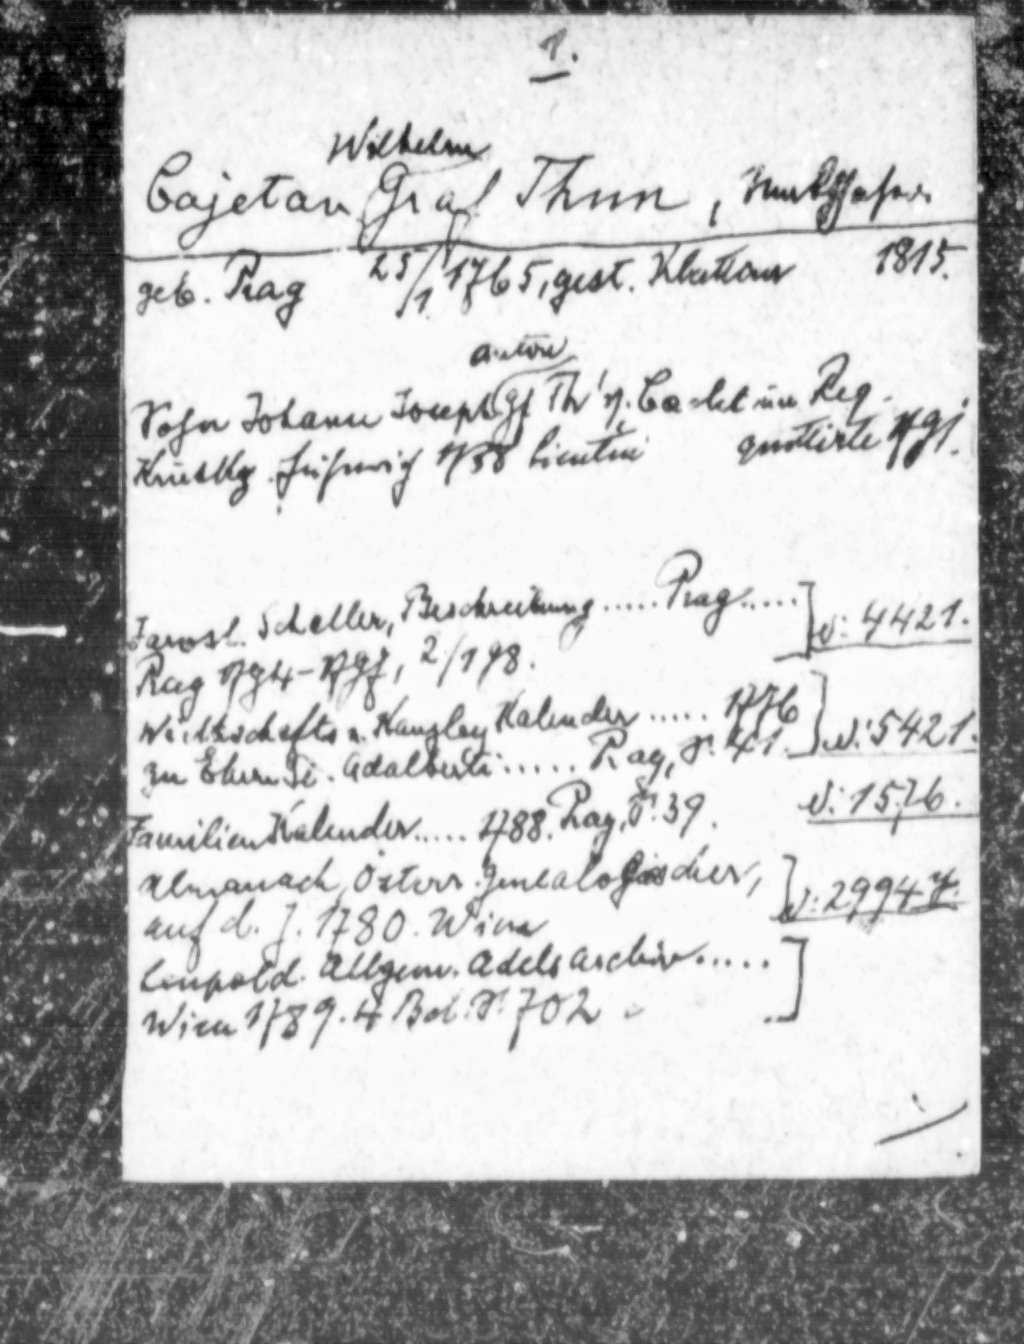 1.
Wilhelm
Cajetan Graf Thun,
geb. Prag 25/1 1765, gest. Klattau 1815.
Anton
Sohn Johann Joseph Gf Th'
quittirte 1791.
Jarosl. Schaller, Beschreibung ..... Prag ..... ] N: 4421.
Prag 1794-1797, 2/198.
Wirthschafts u. Kanzley Kalender ..... 1776 ] N: 5421.
zu Ehren St. Adalberti ..... Prag, S. 41.
Familien Kalender ..... 1788. Prag, S. 39. N: 1576.
Almanach, Österr. Genealogischer, ] N: 2994
auf d. J. 1780. Wien
Leupold. Allgem. Adels archiv ..... ]
Wien 1789. 4 Bd. S. 702